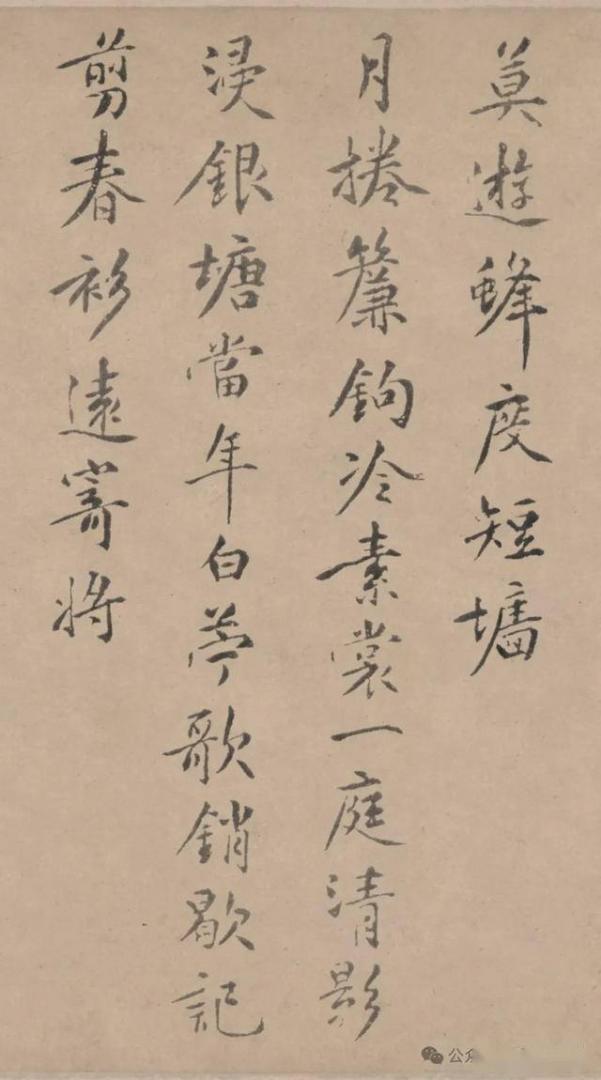 莫遊蜂度短墻
月捲簾鉤冷素裳一庭清影
浸銀塘當年白苧歌銷歇記
剪春衫遠寄將
公众